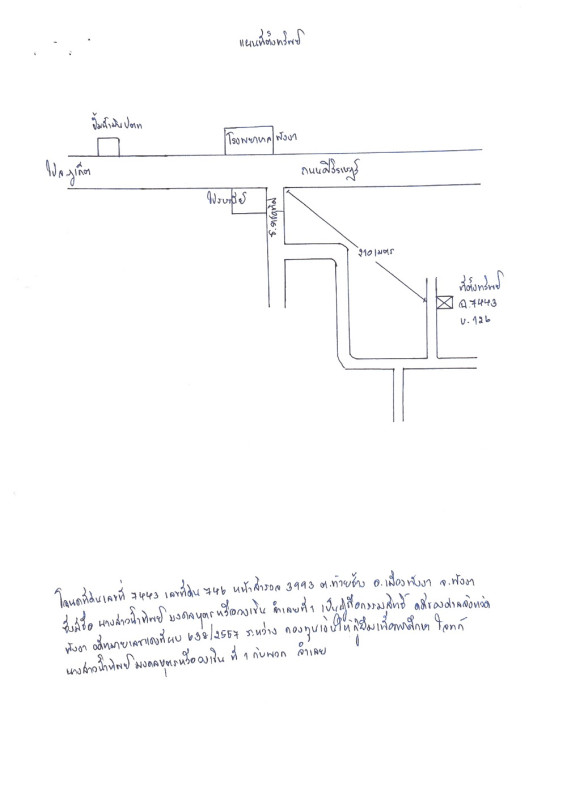 แผนที่ตั้งทรัพย์
ปั้มน้ำมันปตท
โรงพยาบาลพังงา
ไปจ.ภูเก็ต
ถนนเพชรเกษม
ไปรษณีย์
210 เมตร
ที่ตั้งทรัพย์
ฉ.7443
บ.126
โฉนดที่ดินเลขที่ 7443 เลขที่ดิน 746 หน้าสำรวจ 3993 ต.ท้ายช้าง อ.เมืองพังงา จ.พังงา
ซึ่งมีชื่อ นางสาวน้ำทิพย์ จำเลยที่ 1 เป็นผู้ถือกรรมสิทธิ์ คดีของศาลจังหวัด
พังงา คดีหมายเลขแดงที่ ผบ 638/2557 ระหว่าง กองทุนเงินให้กู้ยืมเพื่อการศึกษา โจทก์
นางสาวน้ำทิพย์ ที่ 1 กับพวก จำเลย